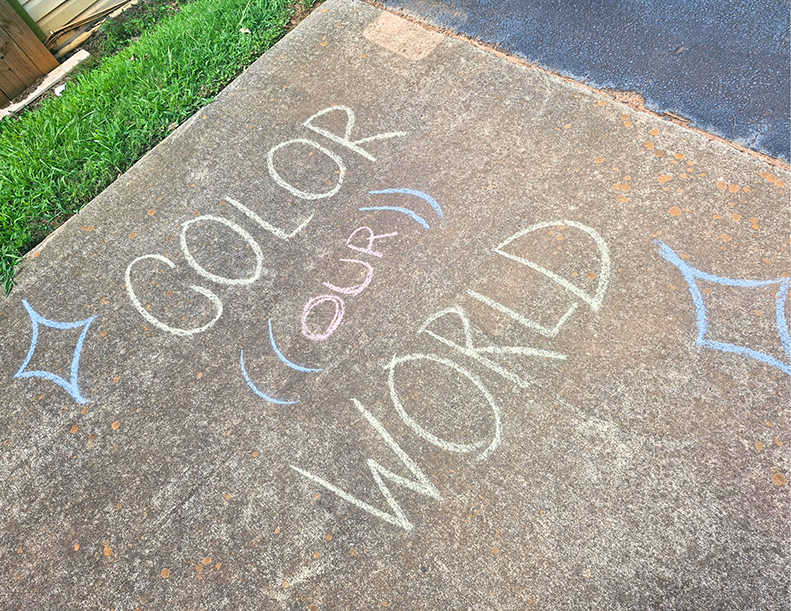 COLOR
OUR
WORLD